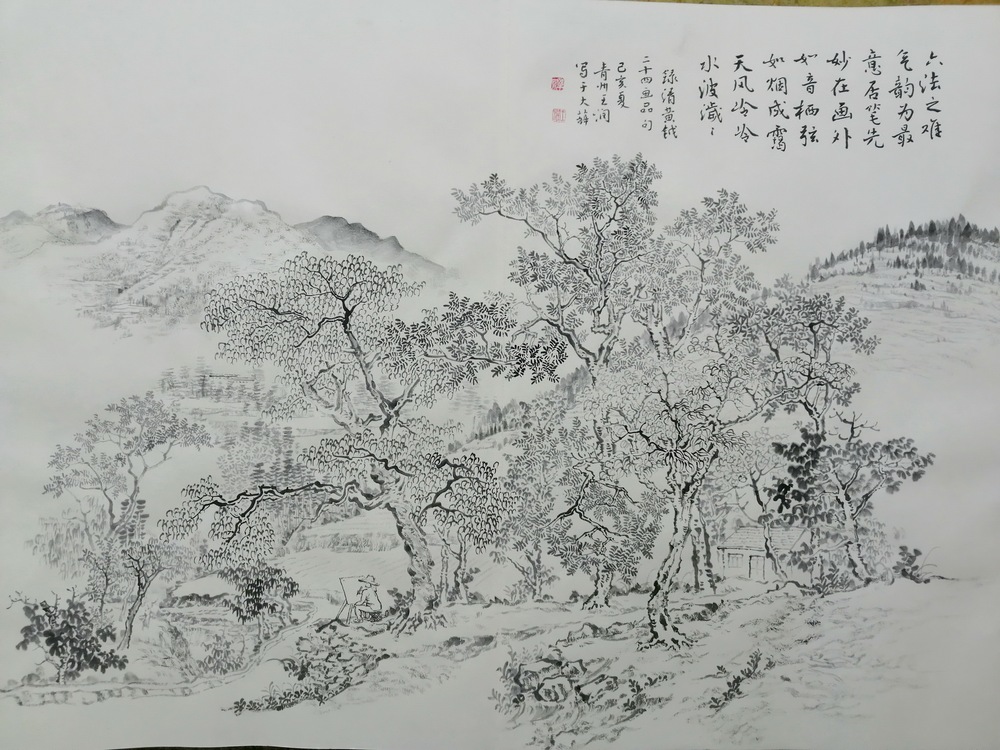 六法之难
气韵为最
意居笔先
妙在画外
如音栖弦
如烟成霭
天风泠泠
水波瀎〻
录清黄钺
二十四画品句
己亥夏
青州王润
写于大薛